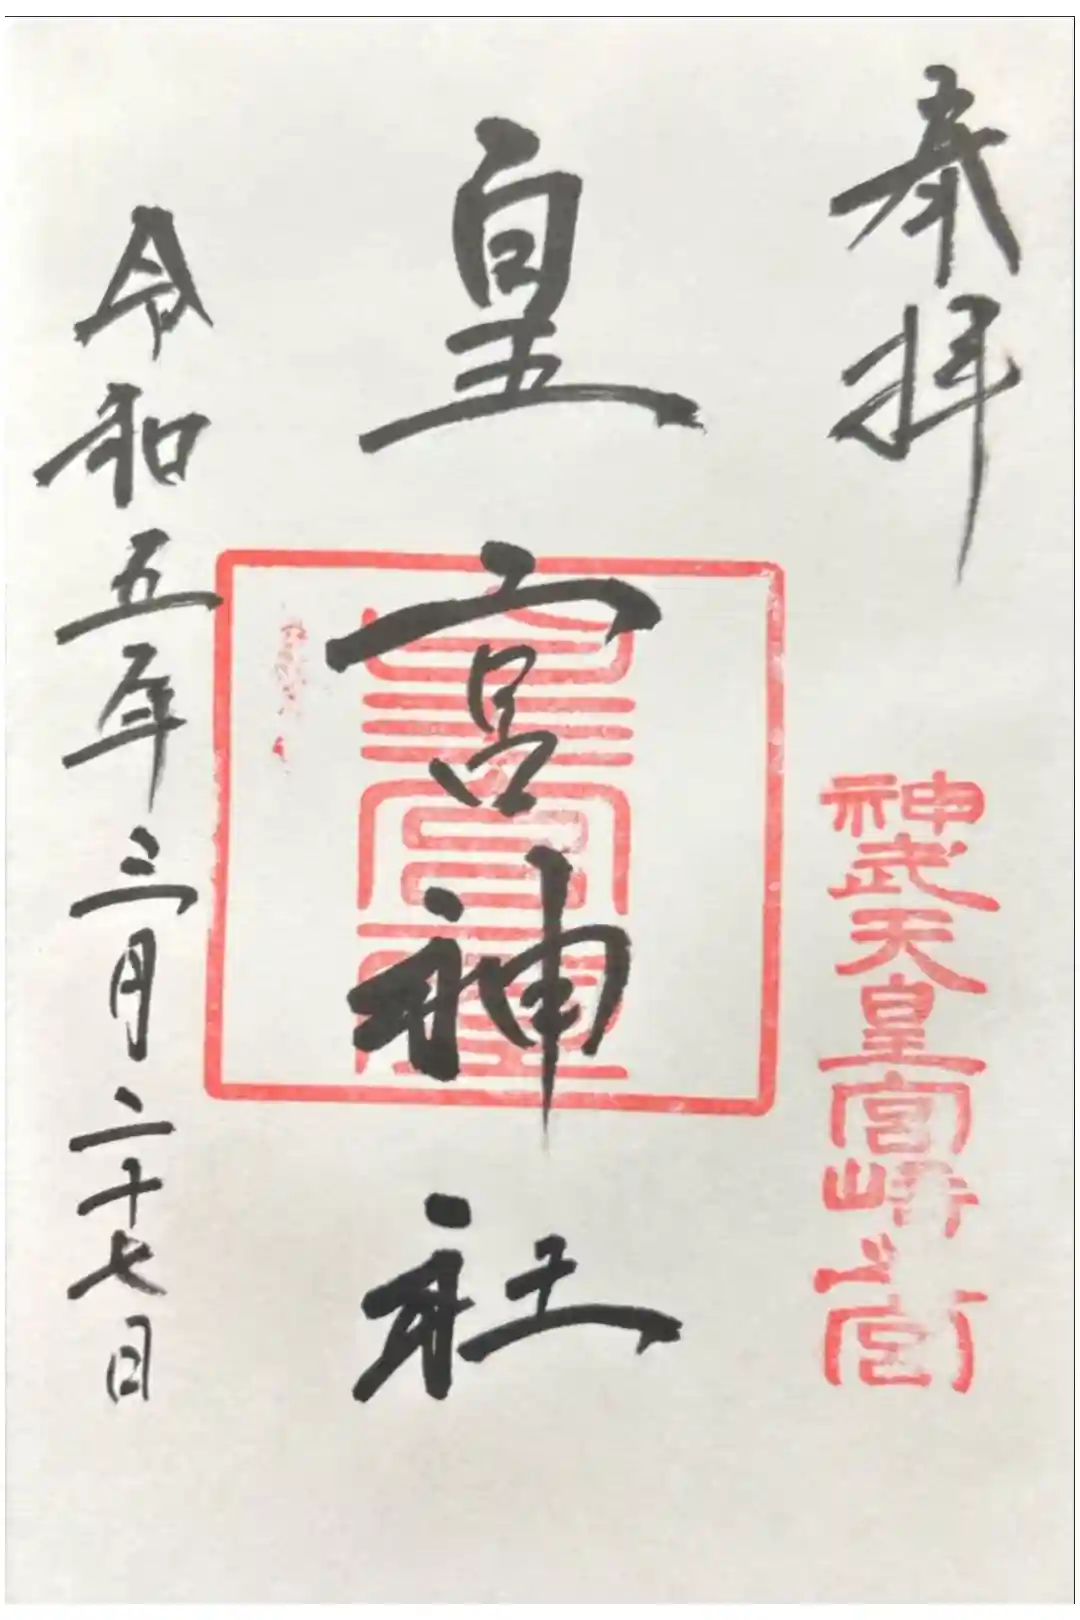 奉拝
神武天皇宮崎之宮
皇宮神社
皇宮神璽
令和五年三月二十七日